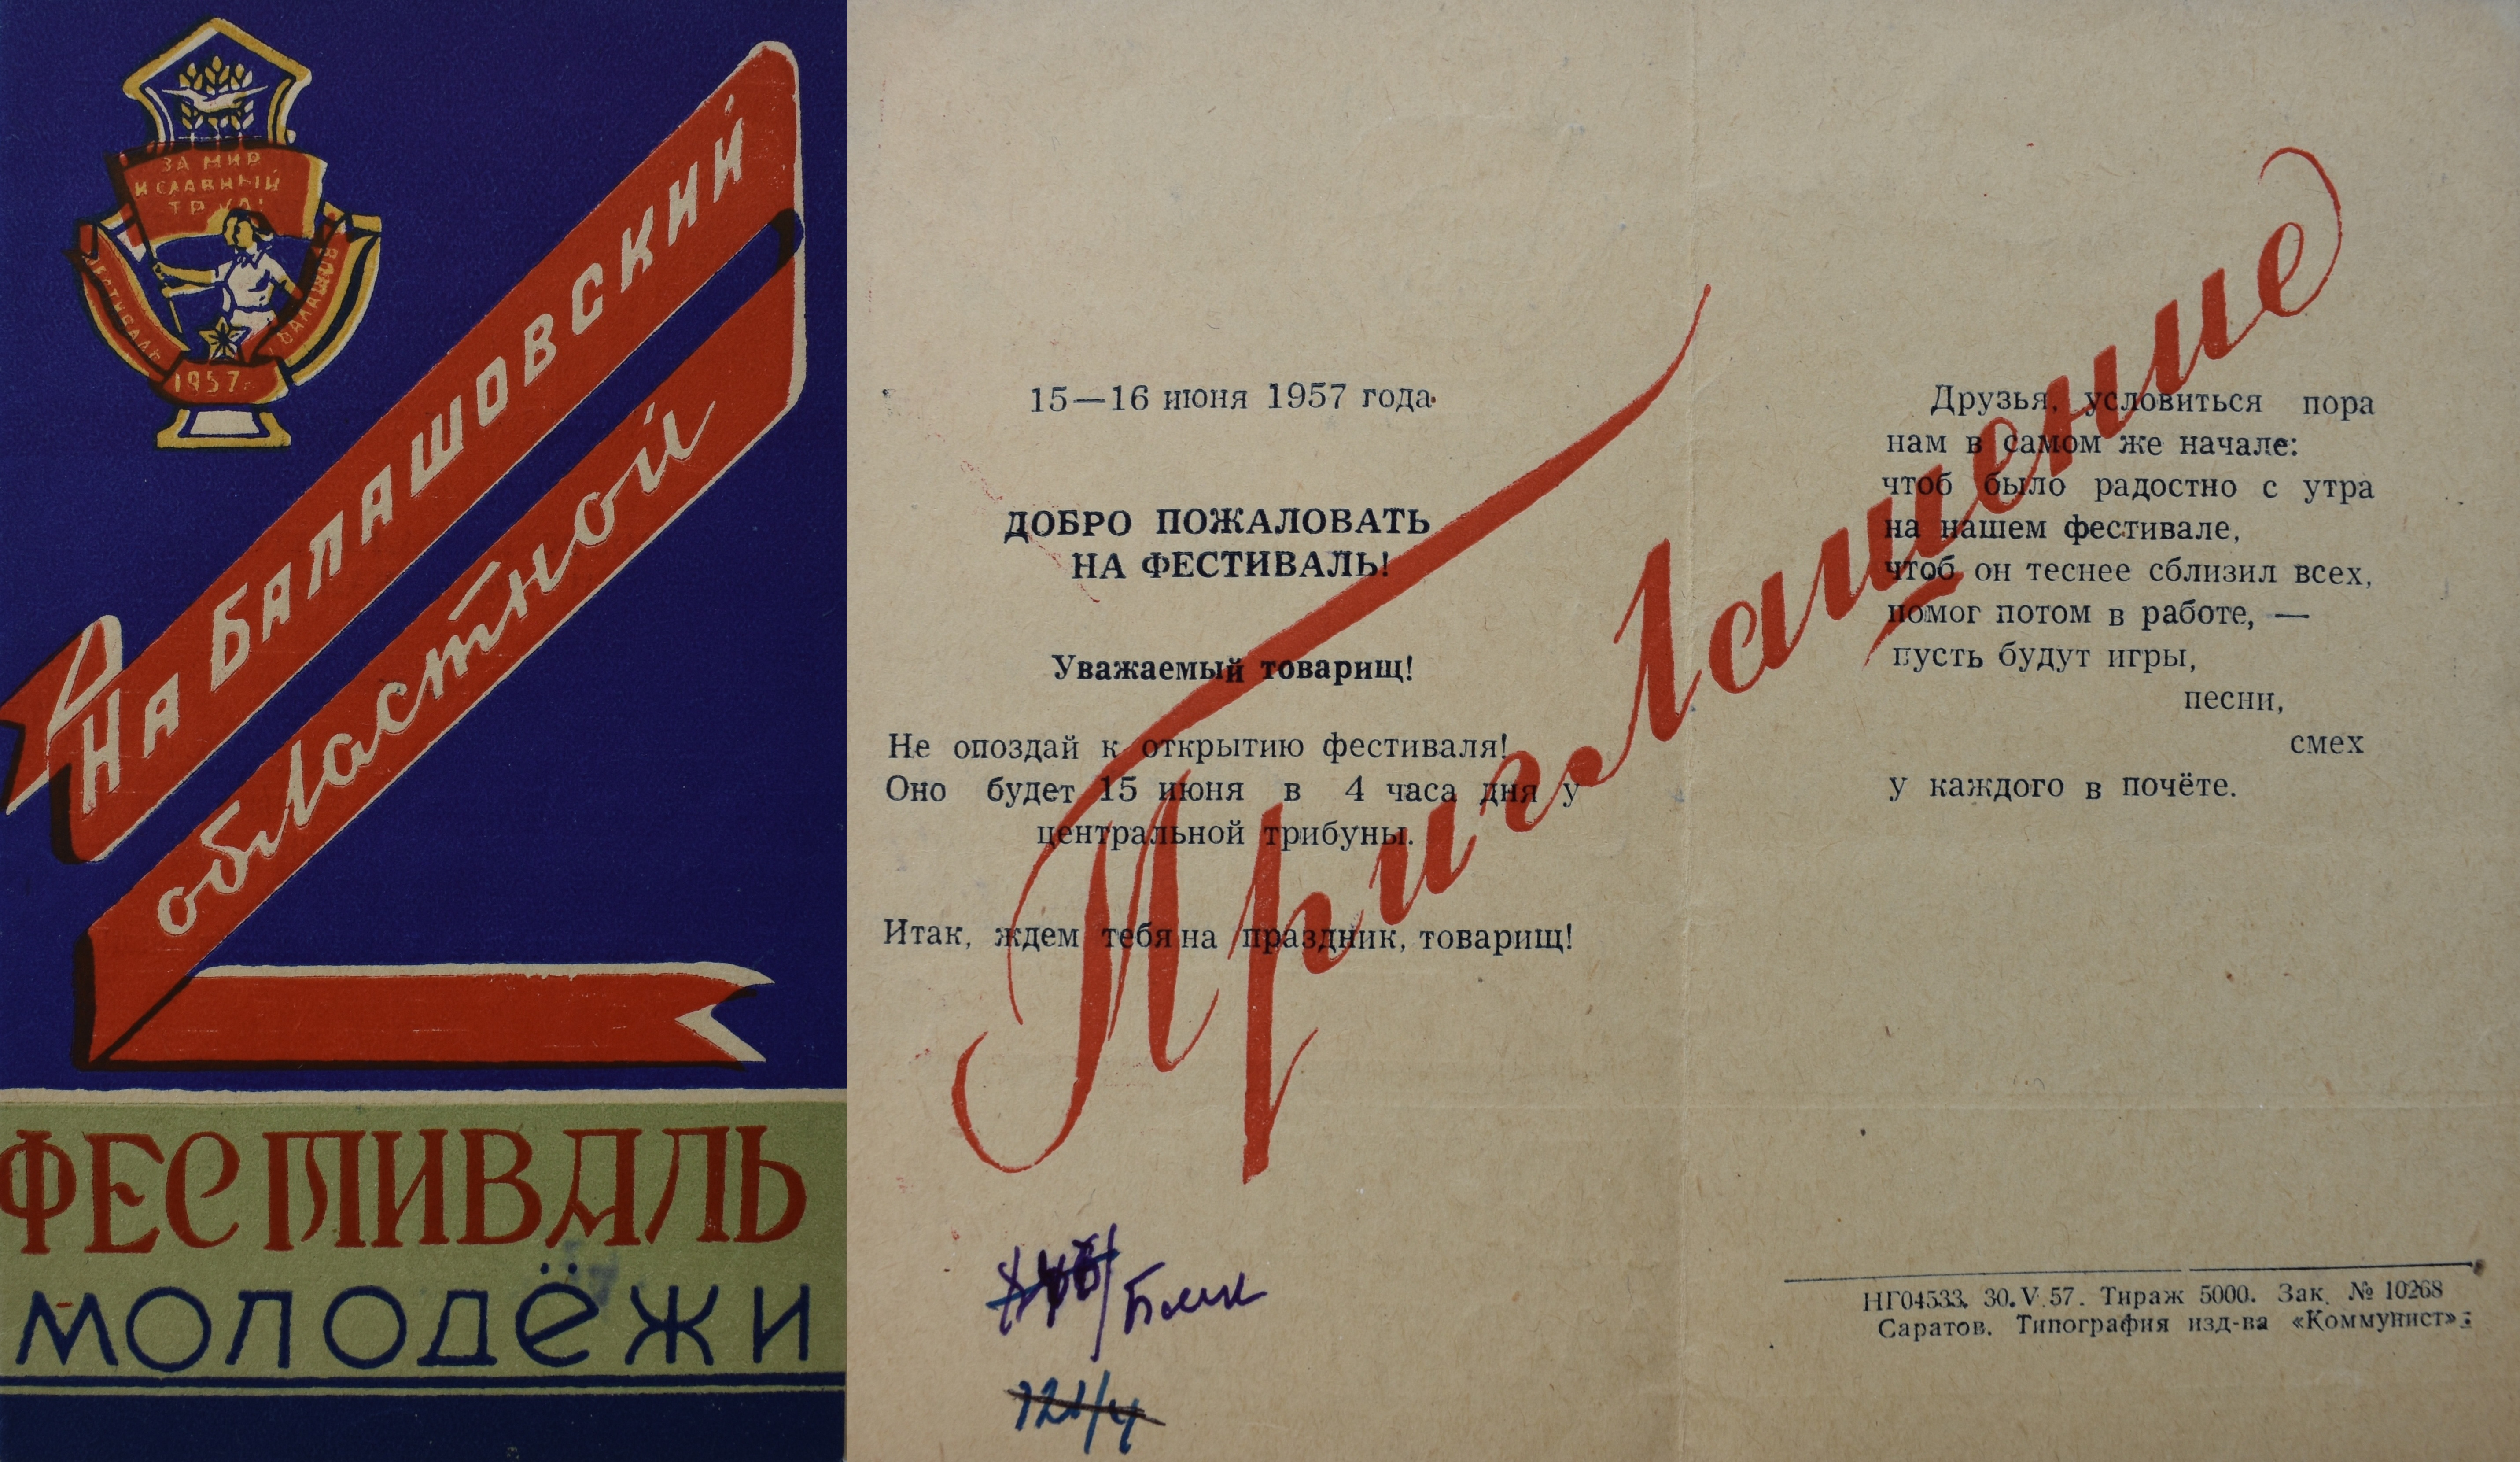 ЗА МИР
И СЛАВНЫЙ
ТРУД!
ФЕСТИВАЛЬ
БАЛАШОВ
1957 г.
На Балашовский
областной
ФЕСТИВАЛЬ
МОЛОДЁЖИ
Приглашение
15—16 июня 1957 года.
ДОБРО ПОЖАЛОВАТЬ
НА ФЕСТИВАЛЬ!
Уважаемый товарищ!
Не опоздай к открытию фестиваля!
Оно будет 15 июня в 4 часа дня у
центральной трибуны.
Итак, ждем тебя на праздник, товарищ!
122/4
Друзья, условиться пора
нам в самом же начале:
чтоб было радостно с утра
на нашем фестивале,
чтоб он теснее сблизил всех,
помог потом в работе, —
пусть будут игры,
песни,
смех
у каждого в почёте.
НГ04533. 30.V.57. Тираж 5000. Зак. № 10268
Саратов. Типография изд-ва «Коммунист».